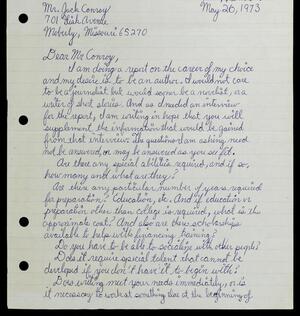 May 26, 1973
Mr. Jack Conroy
701 Fisk Avenue
Moberly, Missouri 65270
Dear Mr. Conroy,
I am doing a report on the career of my choice
and my desire is to be an author. I would not care
to be a journalist but would rather be a novelist, or a
writer of short stories. And as I needed an interview
for the report, I am writing in hope that you will
supplement the information that would be gained
from that interview. The questions I am asking need
not be answered, or may be answered as you see fit.
Are there any special abilities required, and if so,
how many and what are they?
Are there any particular number of years required
for preparation? Education, etc. And if education or
preparation other than college is required, what is the
approximate cost? And also are there scholarships
available to help with financing training?
Do you have to be able to socialize with other people?
Does it require special talent that cannot be
developed if you don't have it to begin with?
Does writing meet your needs immediately, or is
it necessary to work at something else at the beginning of